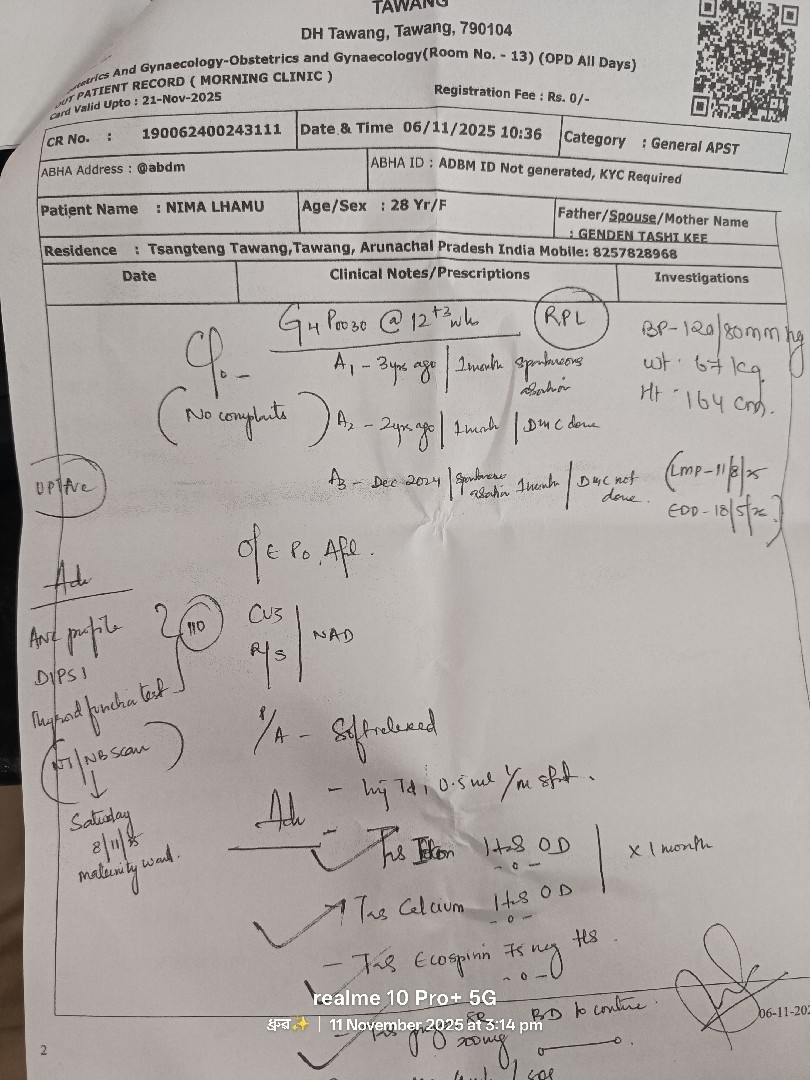 TAWANG
DH Tawang, Tawang, 790104
etrics And Gynaecology-Obstetrics and Gynaecology(Room No. - 13) (OPD All Days)
OUT PATIENT RECORD ( MORNING CLINIC )
Card Valid Upto : 21-Nov-2025
Registration Fee : Rs. 0/-
CR No. : 190062400243111 Date & Time 06/11/2025 10:36 Category : General APST
ABHA Address : @abdm ABHA ID : ADBM ID Not generated, KYC Required
Patient Name : NIMA LHAMU Age/Sex : 28 Yr/F Father/Spouse/Mother Name
: GENDEN TASHI KEE
Residence : Tsangteng Tawang,Tawang, Arunachal Pradesh India Mobile: 8257828968
Date Clinical Notes/Prescriptions Investigations
G4 P0030 @ 12+3 wk RPL
BP-120/80mmHg
C/o - A1 - 3yrs ago | 1month spontaneous abortion
Wt - 67 kg
Ht - 164 cm.
(No complaints) A2 - 2yrs ago | 1month | D&C done
UPT +ve A3 - Dec 2024 | spontaneous abortion 1month | D&C not done.
(LMP-11/8/25
EDD-18/5/26)
O/E P0, Afl.
Adv
ANC profile
DIPSI
Thyroid function test
110
CVS
R/S | NAD
NT/NB Scan
Saturday
8/11/25
maternity ward.
P/A - Soft relaxed
Adv - Inj Td i 0.5ml I/m stat.
- Tab Iron 1tab OD
x 1 month
Tab Calcium 1tab OD
- Tab Ecosprin 75 mg HS.
SR 200mg BD to continue.
06-11-202
/ sos
2
realme 10 Pro+ 5G
ध्रुव✨ | 11 November 2025 at 3:14 pm